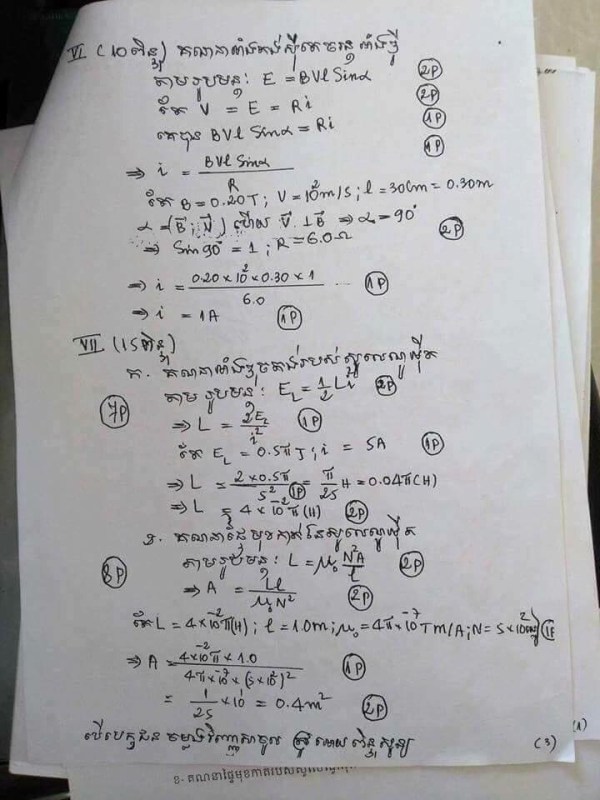 VI (10 ពិន្ទុ) គណនាអាំងតង់ស៊ីតេចរន្តអាំងឌ្វី
តាមរូបមន្ត: E = BVℓ Sinα (2P)
តែ V = E = Ri (2P)
គេបាន BVℓ Sinα = Ri (1P)
⇒ i = BVℓ Sinα / R (1P)
តែ B = 0.20T ; V = 10²m/s ; ℓ = 30Cm = 0.30m
α = (B⃗ ; V⃗) ហើយ V⃗ ⊥ B⃗ ⇒ α = 90°
⇒ Sin90° = 1 ; R = 6.0Ω (2P)
⇒ i = 0.20 × 10² × 0.30 × 1 / 6.0 (1P)
⇒ i = 1A (1P)
VII (15 ពិន្ទុ)
ក. គណនាអាំងឌុចតង់របស់សូលេណូអ៊ីត
(7P) តាមរូបមន្ត: E_L = 1/2 Li² (2P)
⇒ L = 2E_L / i² (1P)
តែ E_L = 0.5πJ ; i = 5A (1P)
⇒ L = 2 × 0.5π / 5² = π/25 H = 0.04π(H) (1P)
⇒ L = 4 × 10⁻² π(H) (2P)
ខ. គណនាផ្ទៃមុខកាត់នៃសូលេណូអ៊ីត
(8P) តាមរូបមន្ត: L = μ₀ N²A / ℓ (2P)
⇒ A = Lℓ / μ₀N² (2P)
តែ L = 4×10⁻²π(H) ; ℓ = 1.0m ; μ₀ = 4π×10⁻⁷ Tm/A ; N = 5×10² (1P)
⇒ A = 4×10⁻²π × 1.0 / 4π×10⁻⁷ × (5×10²)² (1P)
= 1/25 × 10¹ = 0.4m² (2P)
បើបេក្ខជន ចម្លងវិញ្ញាសាចូល ត្រូវអោយ ពិន្ទុសូន្យ
(3)
(1)
ខ- គណនាផ្ទៃមុខកាត់របស់សូលេណូអ៊ីត